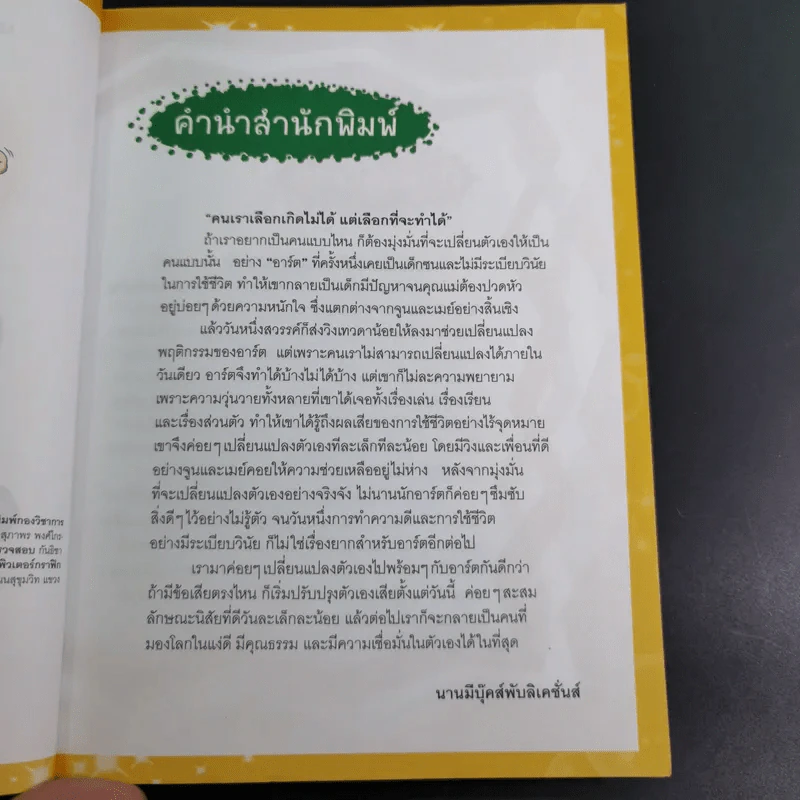 คำนำสำนักพิมพ์
"คนเราเลือกเกิดไม่ได้ แต่เลือกที่จะทำได้"
ถ้าเราอยากเป็นคนแบบไหน ก็ต้องมุ่งมั่นที่จะเปลี่ยนตัวเองให้เป็น
คนแบบนั้น อย่าง "อาร์ต" ที่ครั้งหนึ่งเคยเป็นเด็กซนและไม่มีระเบียบวินัย
ในการใช้ชีวิต ทำให้เขากลายเป็นเด็กมีปัญหาจนคุณแม่ต้องปวดหัว
อยู่บ่อยๆ ด้วยความหนักใจ ซึ่งแตกต่างจากจูนและเมย์อย่างสิ้นเชิง
แล้ววันหนึ่งสวรรค์ก็ส่งวิงเทวดาน้อยให้ลงมาช่วยเปลี่ยนแปลง
พฤติกรรมของอาร์ต แต่เพราะคนเราไม่สามารถเปลี่ยนแปลงได้ภายใน
วันเดียว อาร์ตจึงทำได้บ้างไม่ได้บ้าง แต่เขาก็ไม่ละความพยายาม
เพราะความวุ่นวายทั้งหลายที่เขาได้เจอทั้งเรื่องเล่น เรื่องเรียน
และเรื่องส่วนตัว ทำให้เขาได้รู้ถึงผลเสียของการใช้ชีวิตอย่างไร้จุดหมาย
เขาจึงค่อยๆ เปลี่ยนแปลงตัวเองทีละเล็กทีละน้อย โดยมีวิงและเพื่อนที่ดี
อย่างจูนและเมย์คอยให้ความช่วยเหลืออยู่ไม่ห่าง หลังจากมุ่งมั่น
ที่จะเปลี่ยนแปลงตัวเองอย่างจริงจัง ไม่นานนักอาร์ตก็ค่อยๆ ซึมซับ
สิ่งดีๆ ไว้อย่างไม่รู้ตัว จนวันหนึ่งการทำความดีและการใช้ชีวิต
อย่างมีระเบียบวินัย ก็ไม่ใช่เรื่องยากสำหรับอาร์ตอีกต่อไป
เรามาค่อยๆ เปลี่ยนแปลงตัวเองไปพร้อมๆ กับอาร์ตกันดีกว่า
ถ้ามีข้อเสียตรงไหน ก็เริ่มปรับปรุงตัวเองเสียตั้งแต่วันนี้ ค่อยๆ สะสม
ลักษณะนิสัยที่ดีวันละเล็กละน้อย แล้วต่อไปเราก็จะกลายเป็นคนที่
มองโลกในแง่ดี มีคุณธรรม และมีความเชื่อมั่นในตัวเองได้ในที่สุด
นานมีบุ๊คส์พับลิเคชั่นส์
มพ์กองวิชาการ
สุภาพร พงศ์ไกร
วจสอบ กันธิชา
พิวเตอร์กราฟิก
นนสุขุมวิท แขวง